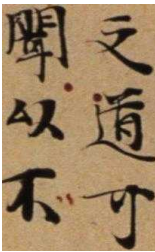 之道可
聞以不